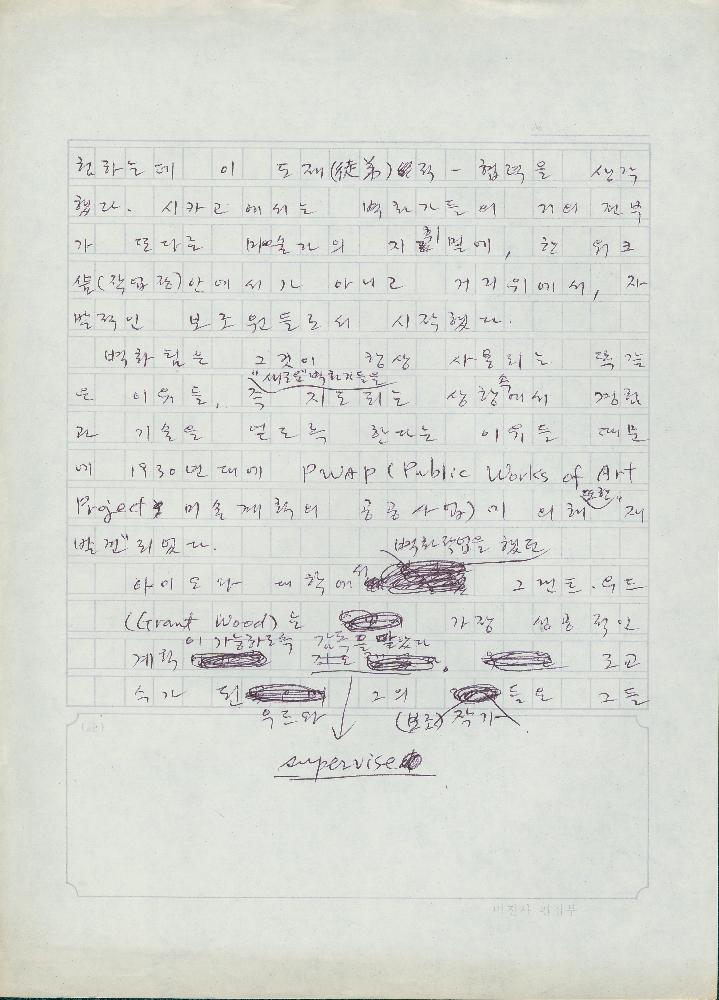 험하는데 이 도제(徒弟)적 - 협력을 생각
했다. 시카고에서는 벽화가들의 거의 전부
가 또다른 미술가의 지휘밑에, 한 워크
샾(작업장)안에서가 아니고 거리위에서, 자
발적인 보조원들로서 시작했다.
벽화팀은 그것이 항상 사용되는 똑같
"새로운" 벽화가들을
은 이유들, 즉 지도되는 상황속에서 경험
과 기술을 얻도록 한다는 이유들 때문
에 1930년대에 PWAP (Public Works of Art
Project 미술계획의 공공사업)에 의해 또한 "재
발견"되었다.
벽화작업을 했던
아이오와 대학에서 그랜트.우드
(Grant Wood)는 가장 성공적인
이 가능하도록 감독을 맡았다
계획 . 로고
수가 된 그의 들은 그들
우드와 (보조) 작가
supervise
미진사 편집부